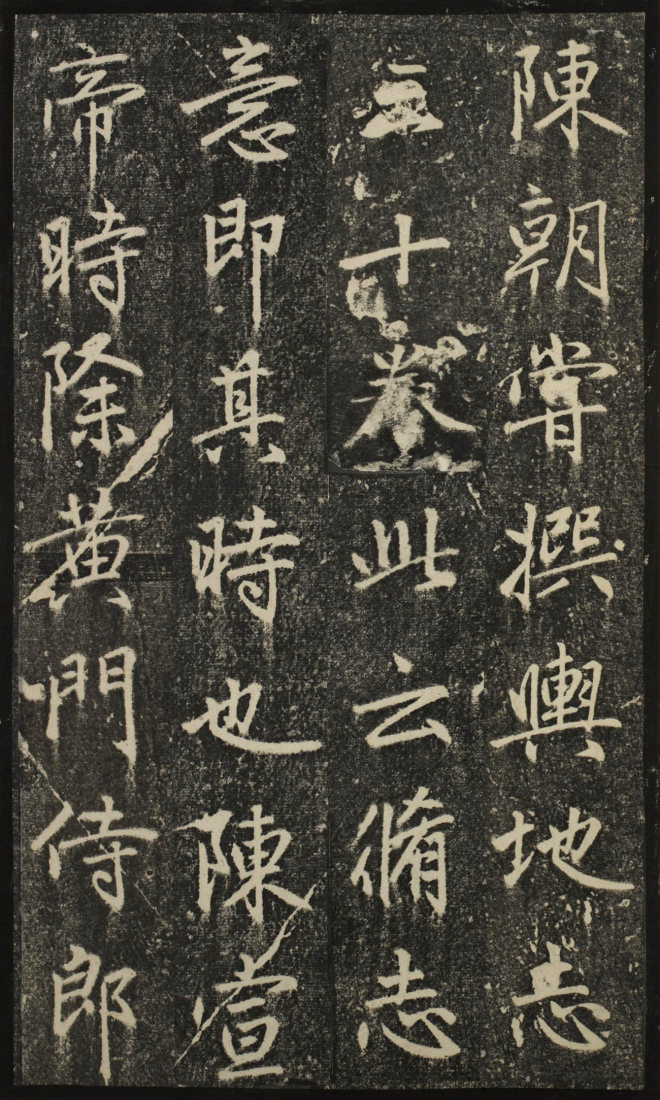 陳朝嘗撰輿地志
三十卷此云脩志
意即其時也陳宣
帝時除黃門侍郎